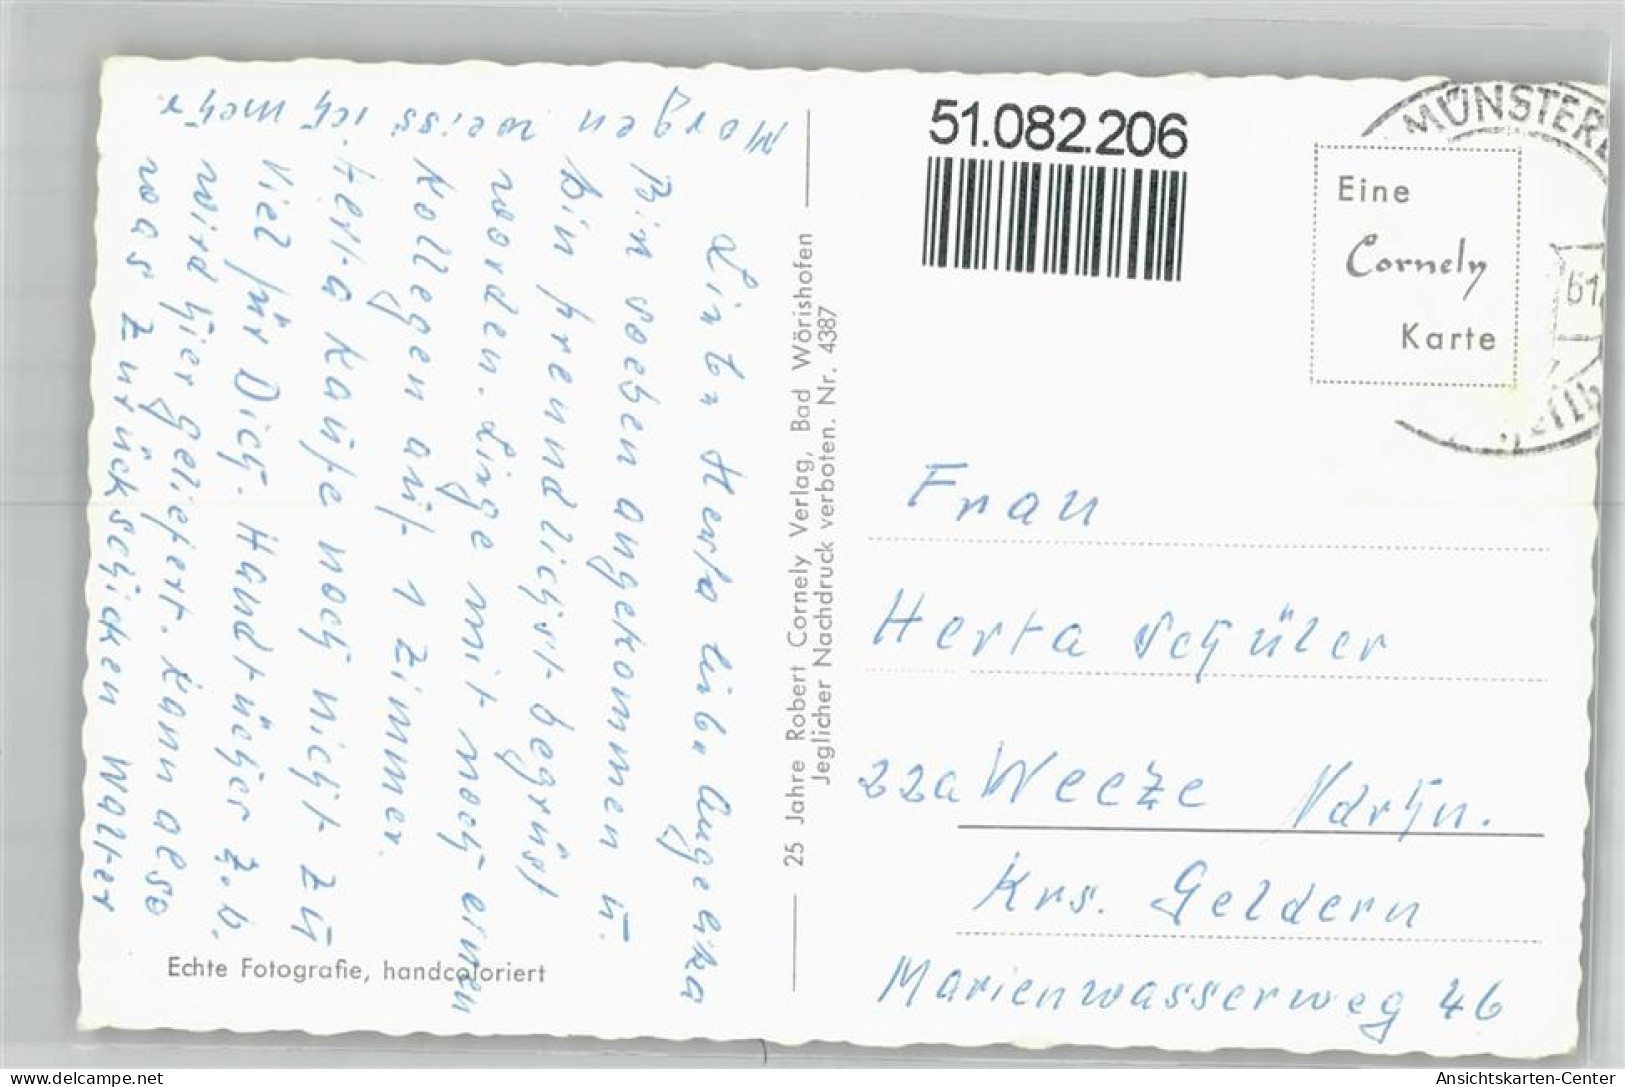 Morgen weiss ich mehr
Liebe Herta liebe Angelika
Bin soeben angekommen u.
bin freundlichst begrüst
worden. Liege mit noch einen
Kollegen auf 1 Zimmer.
Herta kaufe noch nicht zu
viel für Dich. Handtücher z.b.
wird hier geliefert. Kann also
was zurückschicken Walter
Echte Fotografie, handcoloriert
25 Jahre Robert Cornely Verlag, Bad Wörishofen
Jeglicher Nachdruck verboten. Nr. 4387
51.082.206
MÜNSTER
61
Eine
Cornely
Karte
Frau
Herta Schüler
22a Weeze Ndrhn.
Krs. Geldern
Marienwasserweg 46
www.delcampe.net
misc2009
Ansichtskarten-Center